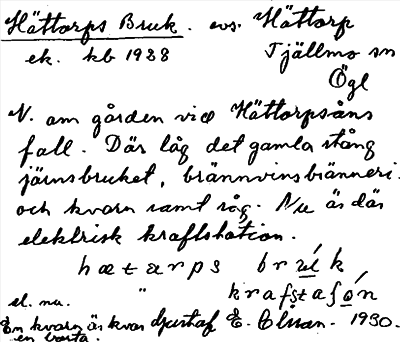 Hättorps Bruk. ovs. Hättorp
ek. kb 1938 Tjällmo sn
Ögl
N. om gården vid Hättorpsåns
fall. Där låg det gamla stång
järnsbruket, brännvinsbränneri
och kvarn samt såg. Nu är där
elektrisk kraftstation.
hætarps brʉ́k
el. nu. " kraftstaʃón
En kvarn är kvar Gustaf E. Olsson. 1930.
en borta.